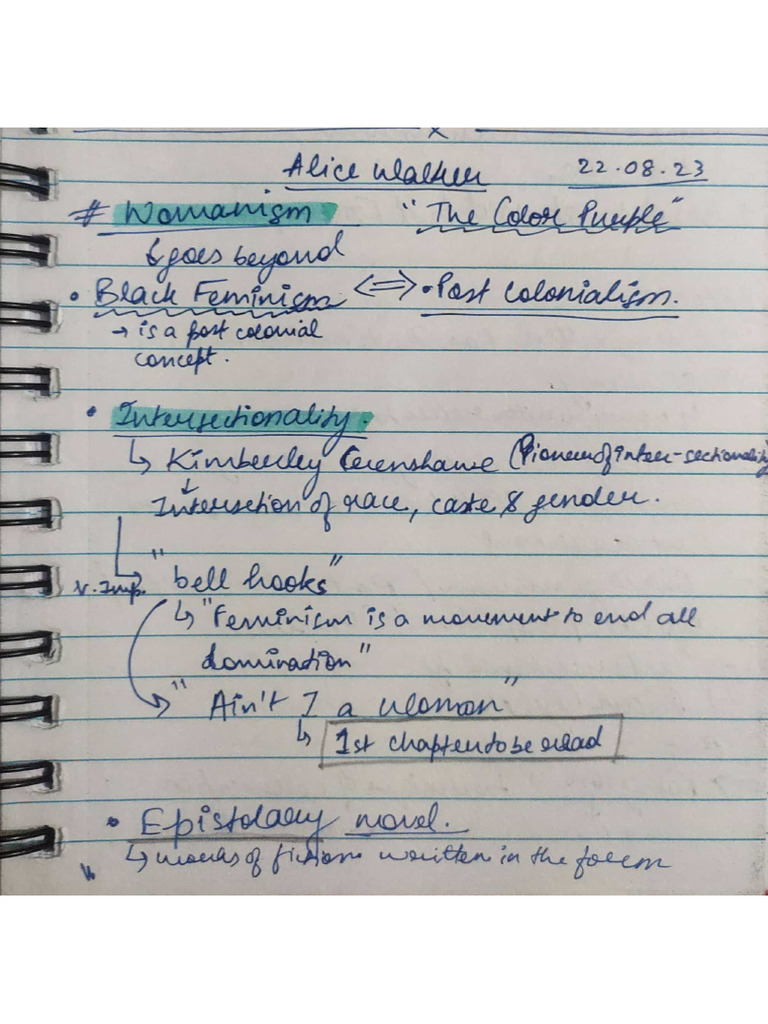 Alice Walker 22.08.23
# Womanism "The Color Purple"
↳ goes beyond
• Black Feminism ⇔ • Post Colonialism.
→ is a post colonial
concept.
• Intersectionality.
↳ Kimberley Crenshawe (Pioneer of inter-sectionality)
↓
Intersection of race, caste & gender.
V. Imp. "bell hooks"
↳ "Feminism is a movement to end all
domination"
"Ain't I a woman"
↳ 1st chapter to be read
• Epistolary novel.
↳ works of fiction written in the form